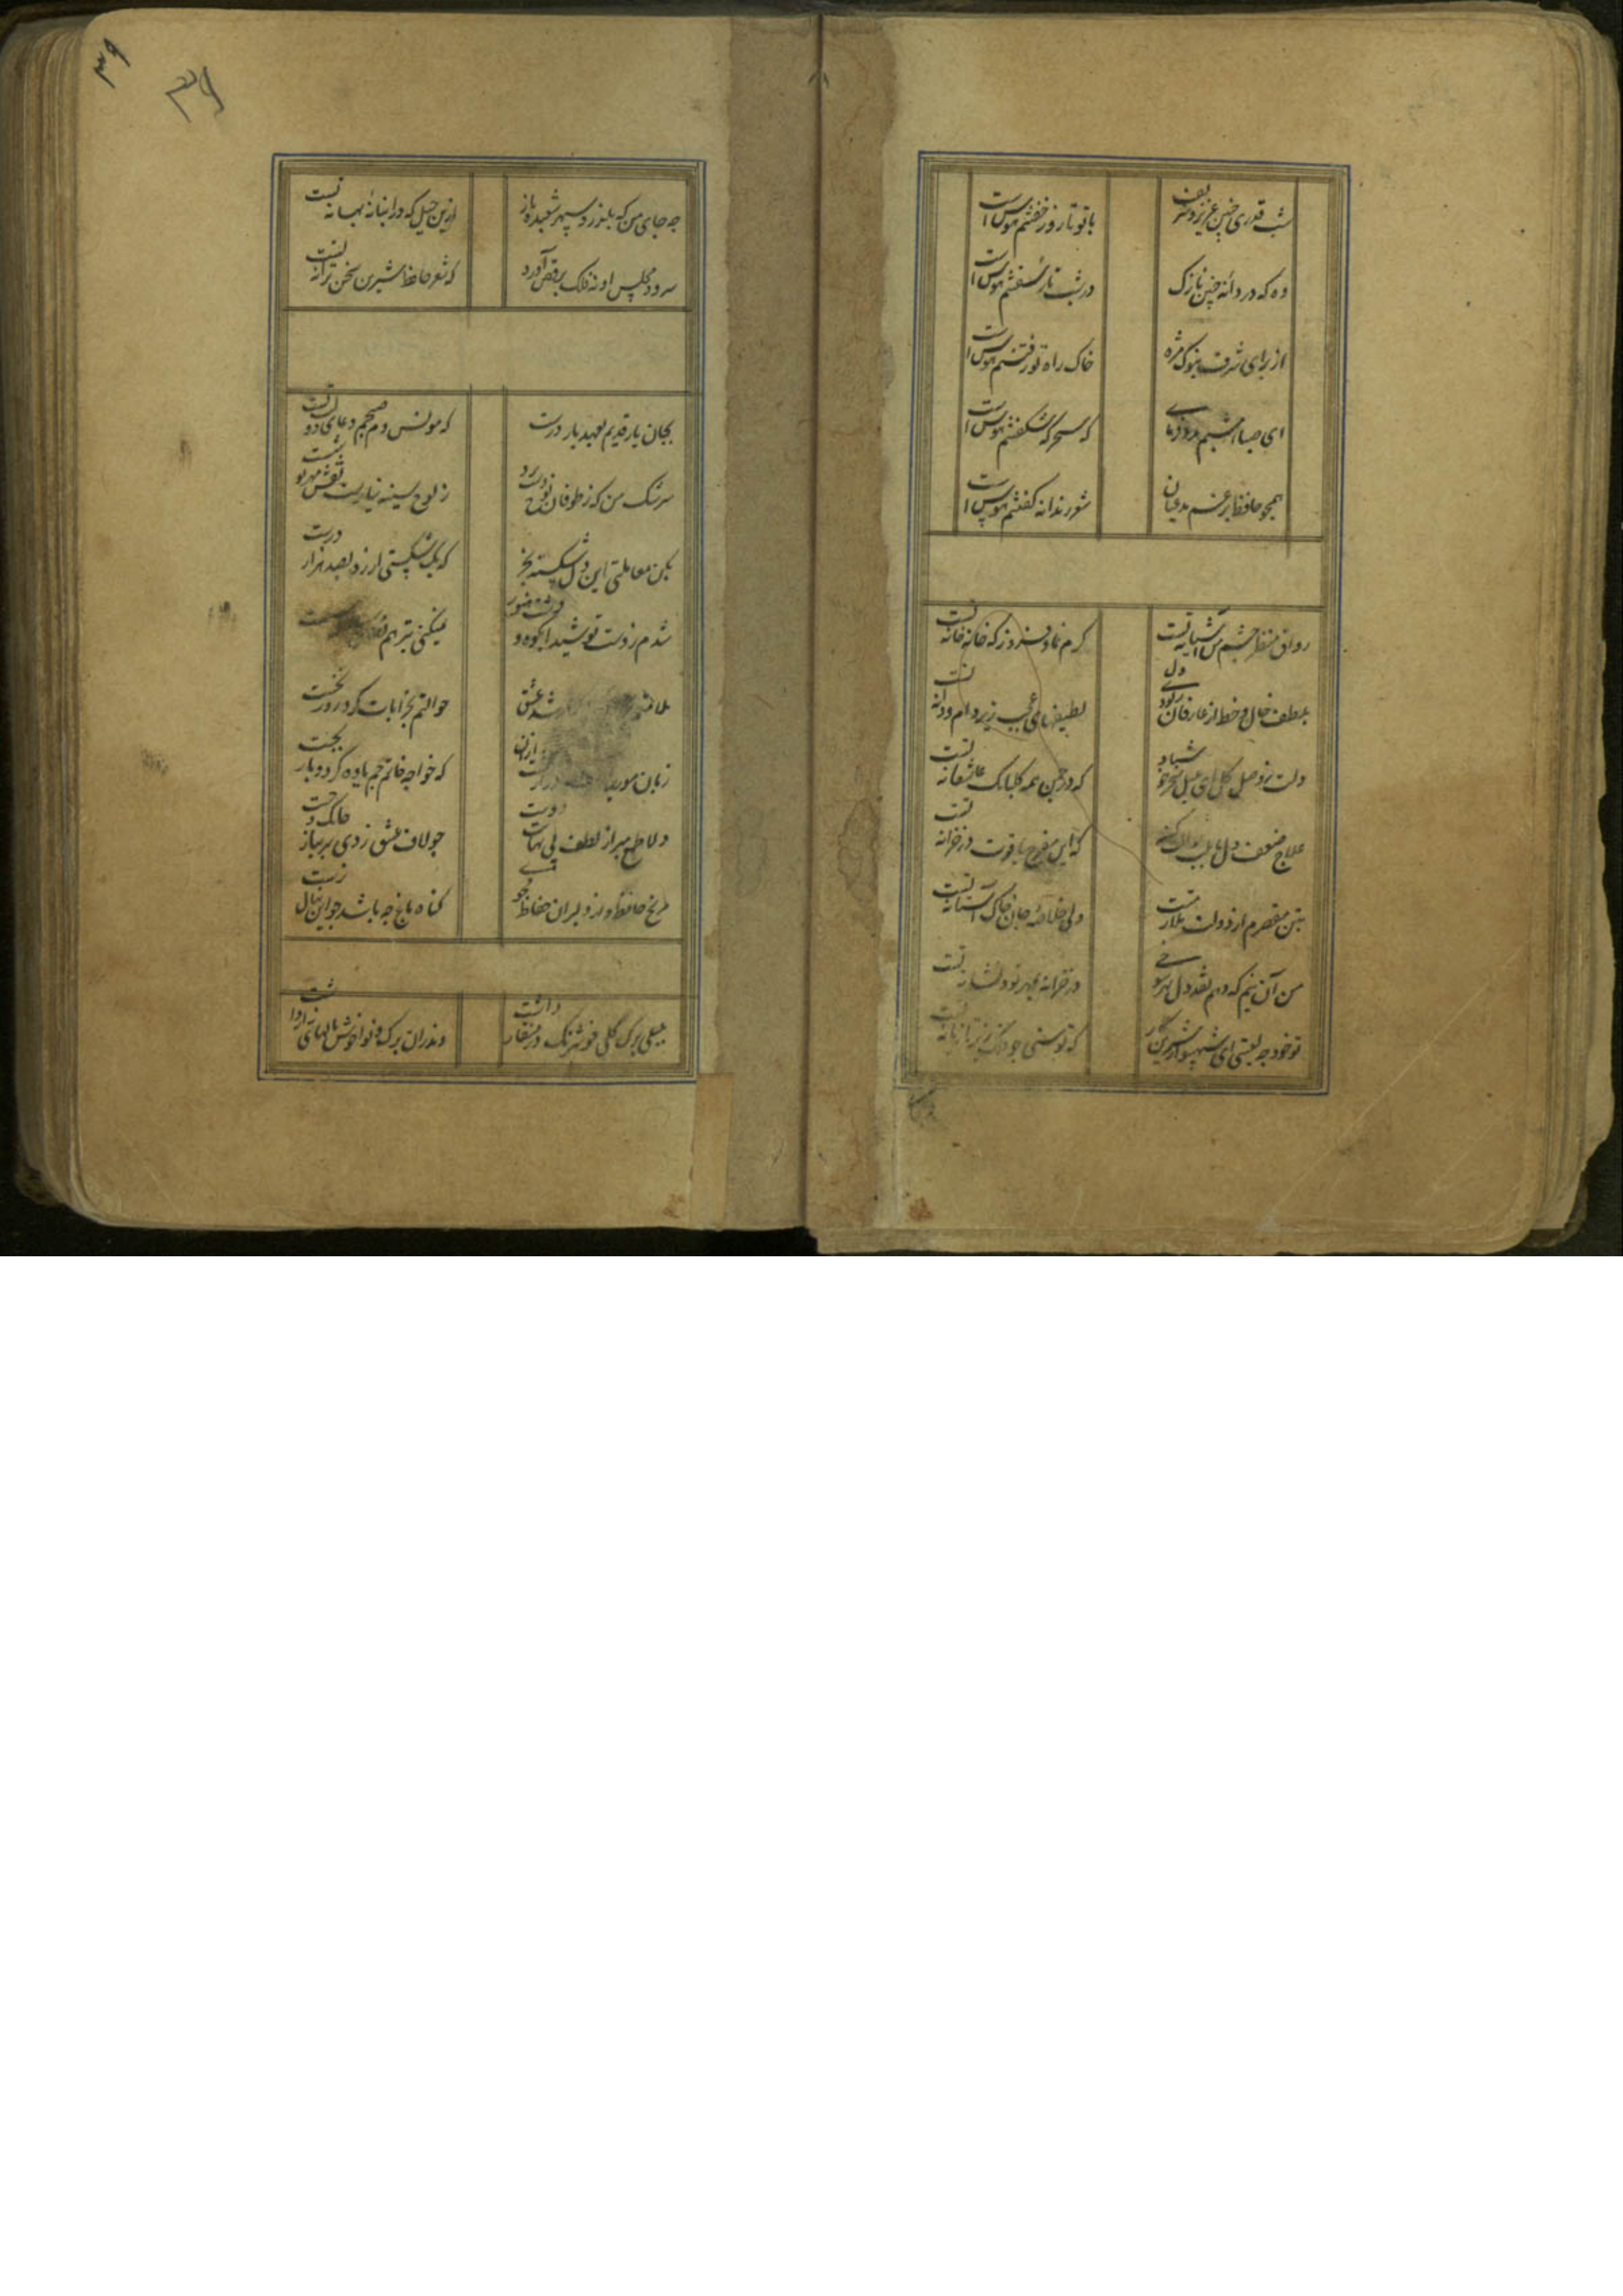 شب قدری چنین عزیز و شریف
با تو تا روز خفتنم هوس است
وه که دردانه چنین نازک
در شب تار سفتنم هوس است
از برای شرف بنوک مژه
خاک راه تو رفتنم هوس است
ای صبا امشبم مدد فرمای
که سحرگه شکفتنم هوس است
همچو حافظ برغم مدعیان
شعر رندانه گفتنم هوس است
رواق منظر چشم من آشیانه تست
کرم نما و فرود آ که خانه خانه تست
بلطف خال و خط از عارفان ربودی دل
لطیفهای عجب زیر دام و دانه تست
دلت بوصل گل ای بلبل سحر خوش باد
که در چمن همه گلبانگ عاشقانه تست
علاج ضعف دل ما بلب
که این مفرح یاقوت در خزانه تست
بتن مقصرم از دولت ملازمت
ولی خلاصه جان خاک آستانه تست
من آن نیم که دهم نقد دل بهر شوخی
در خزانه بمهر تو و نشانه تست
تو خود چه لعبتی ای شهسوار شیرین کار
که توسنی چو فلک تازیانه تست
۳۹
۳۹
چه جای من که بلغزد سپهر شعبده باز
ازین حیل که در انبانه بهانه تست
سرود مجلس او نه فلک برقص آورد
که شعر حافظ شیرین سخن ترانه تست
بجان یار قدیم و بعهد یار درست
که مونس دم صبحم دعای دولت تست
سرشک من که ز طوفان نوح دست برد
ز لوح سینه نیارست نقش مهر تو شست
بکن معاملتی این دل شکسته بخر
که با شکستی ارزد بصد هزار درست
شدم ز دست تو شیدای کوه و دشت هنوز
نمیکنی بترحم
شد عشق
حوالتم بخرابات کرد روز نخست
زبان مور
که خواجه خاتم جم یاوه کرد و باز نجست
دلا طمع مبر از لطف بی نهایت دوست
چو لاف عشق زدی سر بباز چابک و چست
مرنج حافظ و از دلبران حفاظ مجوی
گناه باغ چه باشد چو این نهال نرست
بلبلی برگ گلی خوشرنگ در منقار داشت
وندران برگ و نوا خوش نالهای زار داشت